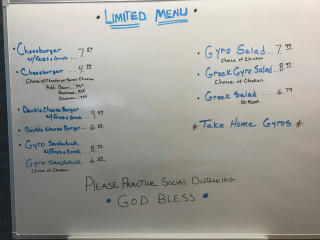 Limited Menu
Cheeseburger
w/Fries & Drink ... 7.
Cheeseburger ... 4.
Add: Bacon
Double Cheese Burger
w/Fries & Drink ... 9.
Double Cheese Burger ... 6.
Gyro Sandwich
w/Fries & Drink ... 8.
Gyro Sandwich ... 6.
Choice of Chicken
Gyro Salad ... 7.
Choice of Chicken
Greek Gyro Salad ... 8.
Choice of Chicken
Greek Salad ... 6.79
No Meat
* Take Home Gyros *
Please Practice Social Distancing
• God Bless •